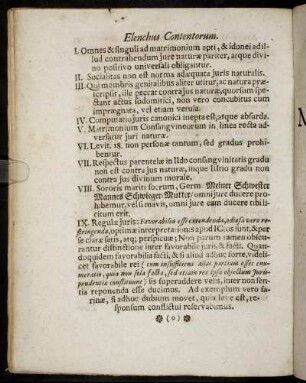 Elenchus Contentorum.
I. Omnes & singuli ad matrimonium apti, & idonei ad il-
lud contrahendum jure naturæ pariter, atque divi-
no positivo universali obligantur.
II. Socialitas non est norma adæquata juris naturalis.
III. Qui membris genitalibus aliter utitur, ac natura præ-
scripsit, ille peccat contra jus naturæ, quorsum spe-
ctant actus sodomitici, non vero concubitus cum
imprægnata, vel etiam vetula.
IV. Computatio juris canonici inepta est, atque absurda.
V. Matrimonium Consangvineorum in linea recta ad-
versatur juri naturæ.
VI. Levit. 18. non personæ tantum, sed gradus prohi-
bentur.
VII. Respectus parentelæ in IIdo consangvinitatis gradu
non est contra jus naturæ, inque IIItio gradu non
contra jus divinum morale.
VIII. Sororis mariti socrum, Germ. Meiner Schwester
Mannes Schwieger-Mutter/ omni jure ducere pro-
hibemur, vel si mavis, omni jure eam ducere tibi li-
citum erit.
IX. Regulæ juris: favorabilia esse extendenda, odiosa vero re-
stringenda, optimæ interpretationis apud ICtos sunt, & per
se claræ satis, atq; perspicuæ; Non parum tamen obscu-
rantur distinctione inter favorabile juris & facti. Quan-
doquidem favorabilis facti, & si aliud adhuc forte, videli-
cet favorabile rei (cum insufficiens alias partium esset enu-
meratio, quia non sola facta, sed etiam res ipsæ objectum juris-
prudentiæ constituunt) iis superaddere velis, inter non sen-
tia reponenda esse ducimus. Ad exemplum vero sa-
rinæ, si adhuc dubium movet, quia leve est, re-
sponsum constictui reservabimus.
(o)